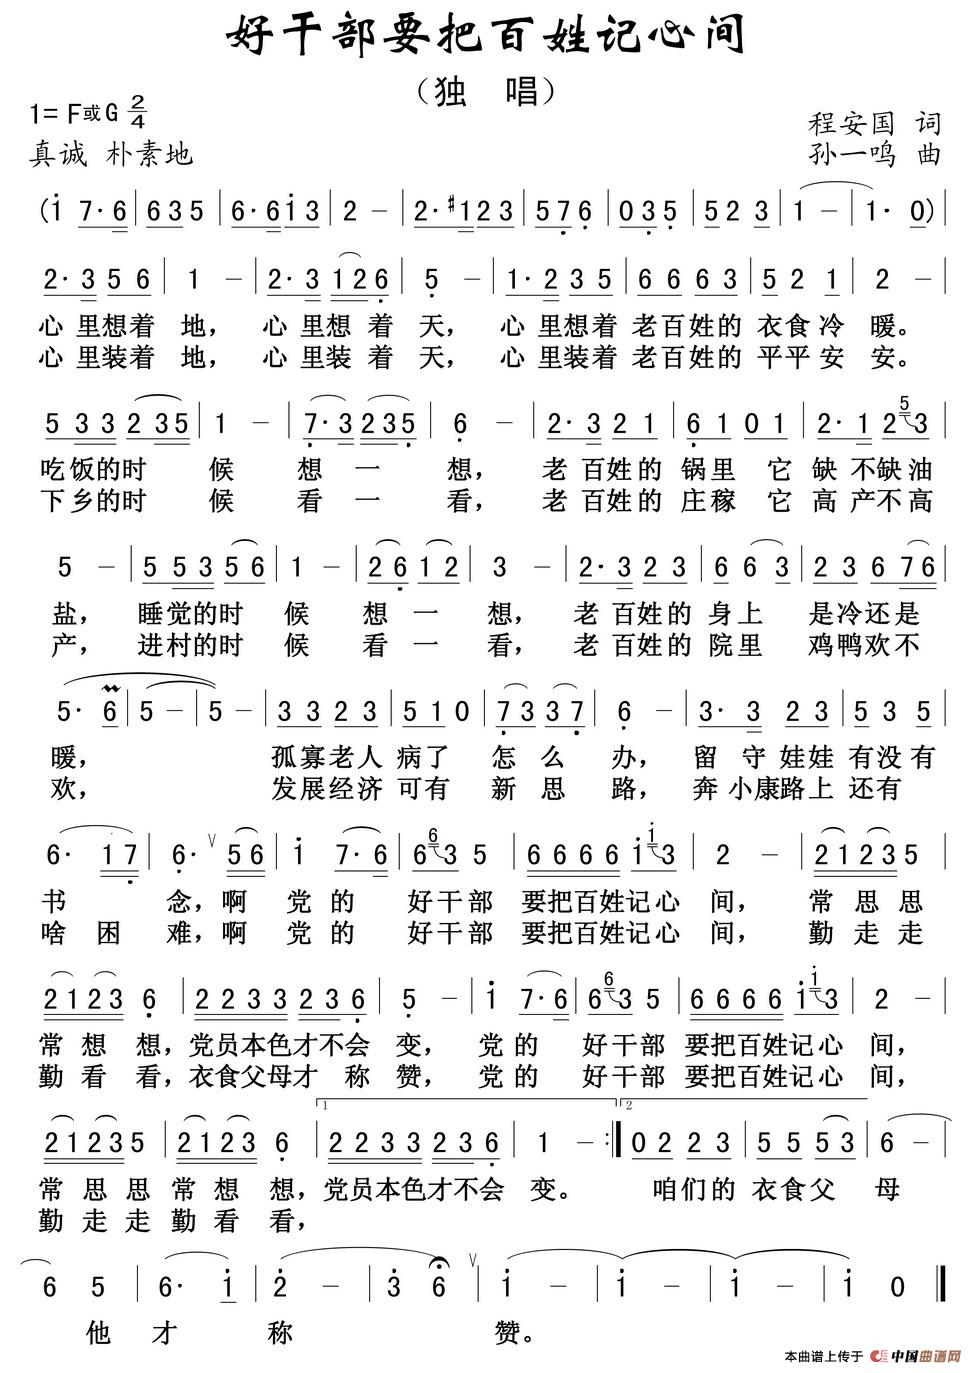 好干部要把百姓记心间
（独　唱）
1= F或G 2/4
程安国 词
真诚 朴素地
孙一鸣 曲
(i 7·6 | 6 3 5 | 6·6 i 3 | 2 － | 2·#1 2 3 | 5 7 6 | 0 3 5 | 5 2 3 | 1 － | 1· 0)|
2·3 5 6 | 1 － | 2·3 1 2 6 | 5 － | 1·2 3 5 | 6 6 6 3 | 5 2 1 | 2 － |
心 里想着 地， 心 里想 着 天， 心 里想着 老百姓的 衣食 冷 暖。
心 里装着 地， 心 里装 着 天， 心 里装着 老百姓的 平平 安 安。
5 3 3 2 3 5 | 1 － | 7·3 2 3 5 | 6 － | 2·3 2 1 | 6 1 0 1 | 2·1 2 5 3 |
吃饭的时 候 想 一 想， 老 百姓的 锅里 它 缺 不缺油
下乡的时 候 看 一 看， 老 百姓的 庄稼 它 高 产不高
5 － | 5 5 3 5 6 | 1 － | 2 6 1 2 | 3 － | 2·3 2 3 | 6 6 3 | 2 3 6 7 6 |
盐， 睡觉的时 候 想 一 想， 老 百姓的 身上 是冷还是
产， 进村的时 候 看 一 看， 老 百姓的 院里 鸡鸭欢不
5· 6 | 5 － | 5 － | 3 3 2 3 | 5 1 0 | 7 3 3 7 | 6 － | 3· 3 2 3 | 5 3 5 |
暖， 孤寡老人 病了 怎 么 办， 留 守 娃娃 有没有
欢， 发展经济 可有 新 思 路， 奔 小康路上 还有
6· 1 7 | 6· V 5 6 | i 7·6 | 6 6 3 5 | 6 6 6 6 i i 3 | 2 － | 2 1 2 3 5 |
书 念，啊 党 的 好干部 要把百姓记心 间， 常 思思
啥 困 难，啊 党 的 好干部 要把百姓记心 间， 勤 走走
2 1 2 3 6 | 2 2 3 3 2 3 6 | 5 － | i 7·6 | 6 6 3 5 | 6 6 6 6 i i 3 | 2 － |
常 想 想，党员本色才不会 变， 党 的 好干部 要把百姓记心 间，
勤 看 看，衣食父母才 称 赞， 党 的 好干部 要把百姓记心 间，
1 2
2 1 2 3 5 | 2 1 2 3 6 | 2 2 3 3 2 3 6 | 1 － :| 0 2 2 3 | 5 5 5 3 | 6 － |
常 思 思 常 想 想，党员本色才不会 变。 咱们的 衣食父 母
勤 走 走 勤 看 看，
6 5 | 6· i | 2 － | 3 6 V | i － | i － | i － | i 0 ‖
他 才 称 赞。
本曲谱上传于 中国曲谱网